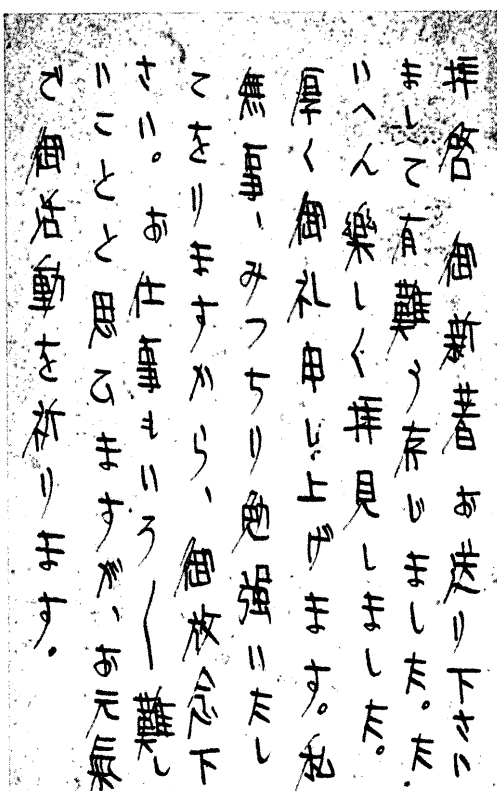 拝啓　御新著お送り下さい
まして有難う存じました。た
いへん樂しく拝見しました。
厚く御礼申し上げます。私
無事、みつちり勉強いたし
てをりますから、御放念下
さい。お仕事もいろ〱難し
いことと思ひますが、お元氣
で御活動を祈ります。